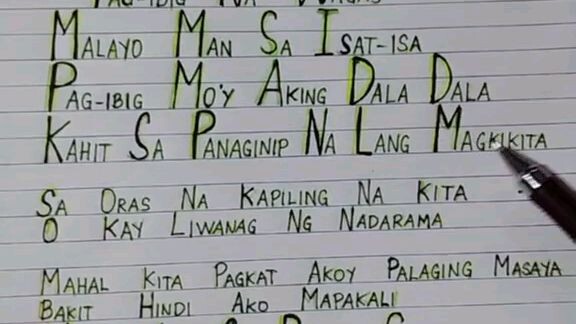 PAG-IBIG
MALAYO MAN SA ISAT-ISA
PAG-IBIG MO'Y AKING DALA DALA
KAHIT SA PANAGINIP NA LANG MAGKIKITA
SA ORAS NA KAPILING NA KITA
O KAY LIWANAG NG NADARAMA
MAHAL KITA PAGKAT AKOY PALAGING MASAYA
BAKIT HINDI AKO MAPAKALI